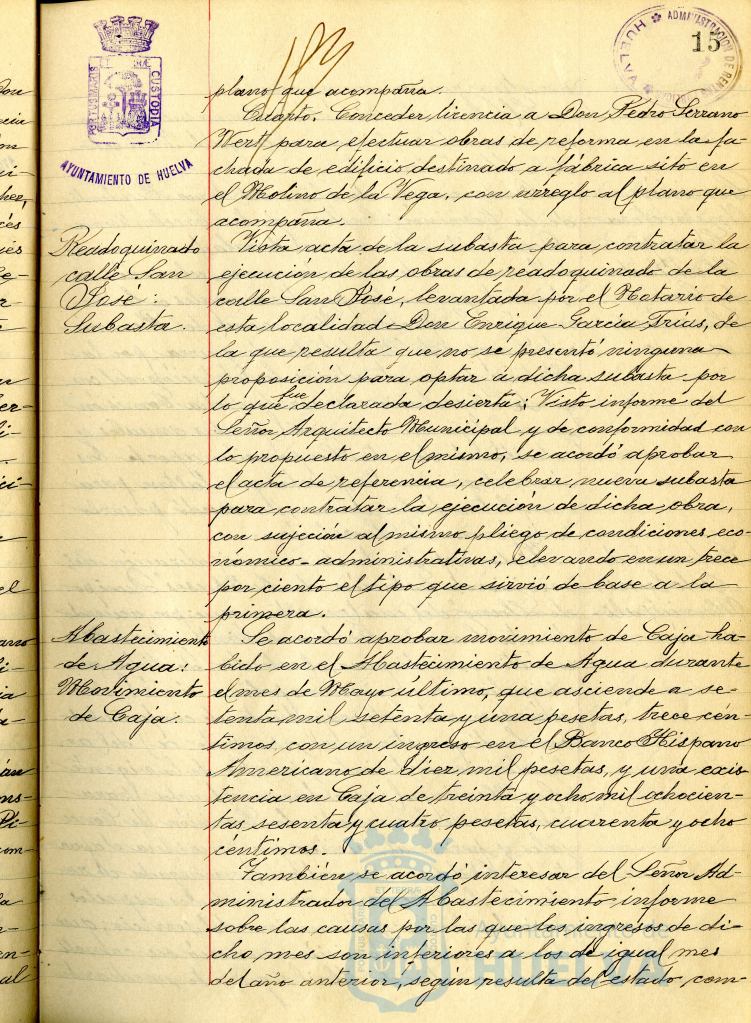 15
ADMINISTRACION DE RENTAS
HUELVA
PORTUS MARIS
CUSTODIA
AYUNTAMIENTO DE HUELVA
plano que acompaña.
Cuarto. Conceder licencia a Don Pedro Serrano
Wert para efectuar obras de reforma en la fa-
chada de edificio destinado a fábrica sito en
el Molino de la Vega, con arreglo al plano que
acompaña.
Readoquinado
calle San
José:
Subasta.
Vista acta de la subasta para contratar la
ejecución de las obras de readoquinado de la
calle San José, levantada por el Notario de
esta localidad Don Enrique García Trías, de
la que resulta que no se presentó ninguna
proposición para optar a dicha subasta por
lo que fue declarada desierta; Visto informe del
Señor Arquitecto Municipal y de conformidad con
lo propuesto en el mismo, se acordó aprobar
el acta de referencia, celebrar nueva subasta
para contratar la ejecución de dicha obra,
con sujección al mismo pliego de condiciones eco-
nómico-administrativas, elevando en un trece
por ciento el tipo que sirvió de base a la
primera.
Abastecimiento
de Agua:
Movimiento
de Caja.
Se acordó aprobar movimiento de Caja ha-
bido en el Abastecimiento de Agua durante
el mes de Mayo último, que asciende a se-
tenta mil setenta y una pesetas, trece cén-
timos, con un ingreso en el Banco Hispano
Americano de diez mil pesetas, y una exis-
tencia en Caja de treinta y ocho mil ochocien-
tas sesenta y cuatro pesetas, cuarenta y ocho
céntimos.
También se acordó interesar del Señor Ad-
ministrador del Abastecimiento informe
sobre las causas por las que los ingresos de di-
cho mes son inferiores a los de igual mes
del año anterior, según resulta del estado com-
Ayuntamiento de
HUELVA